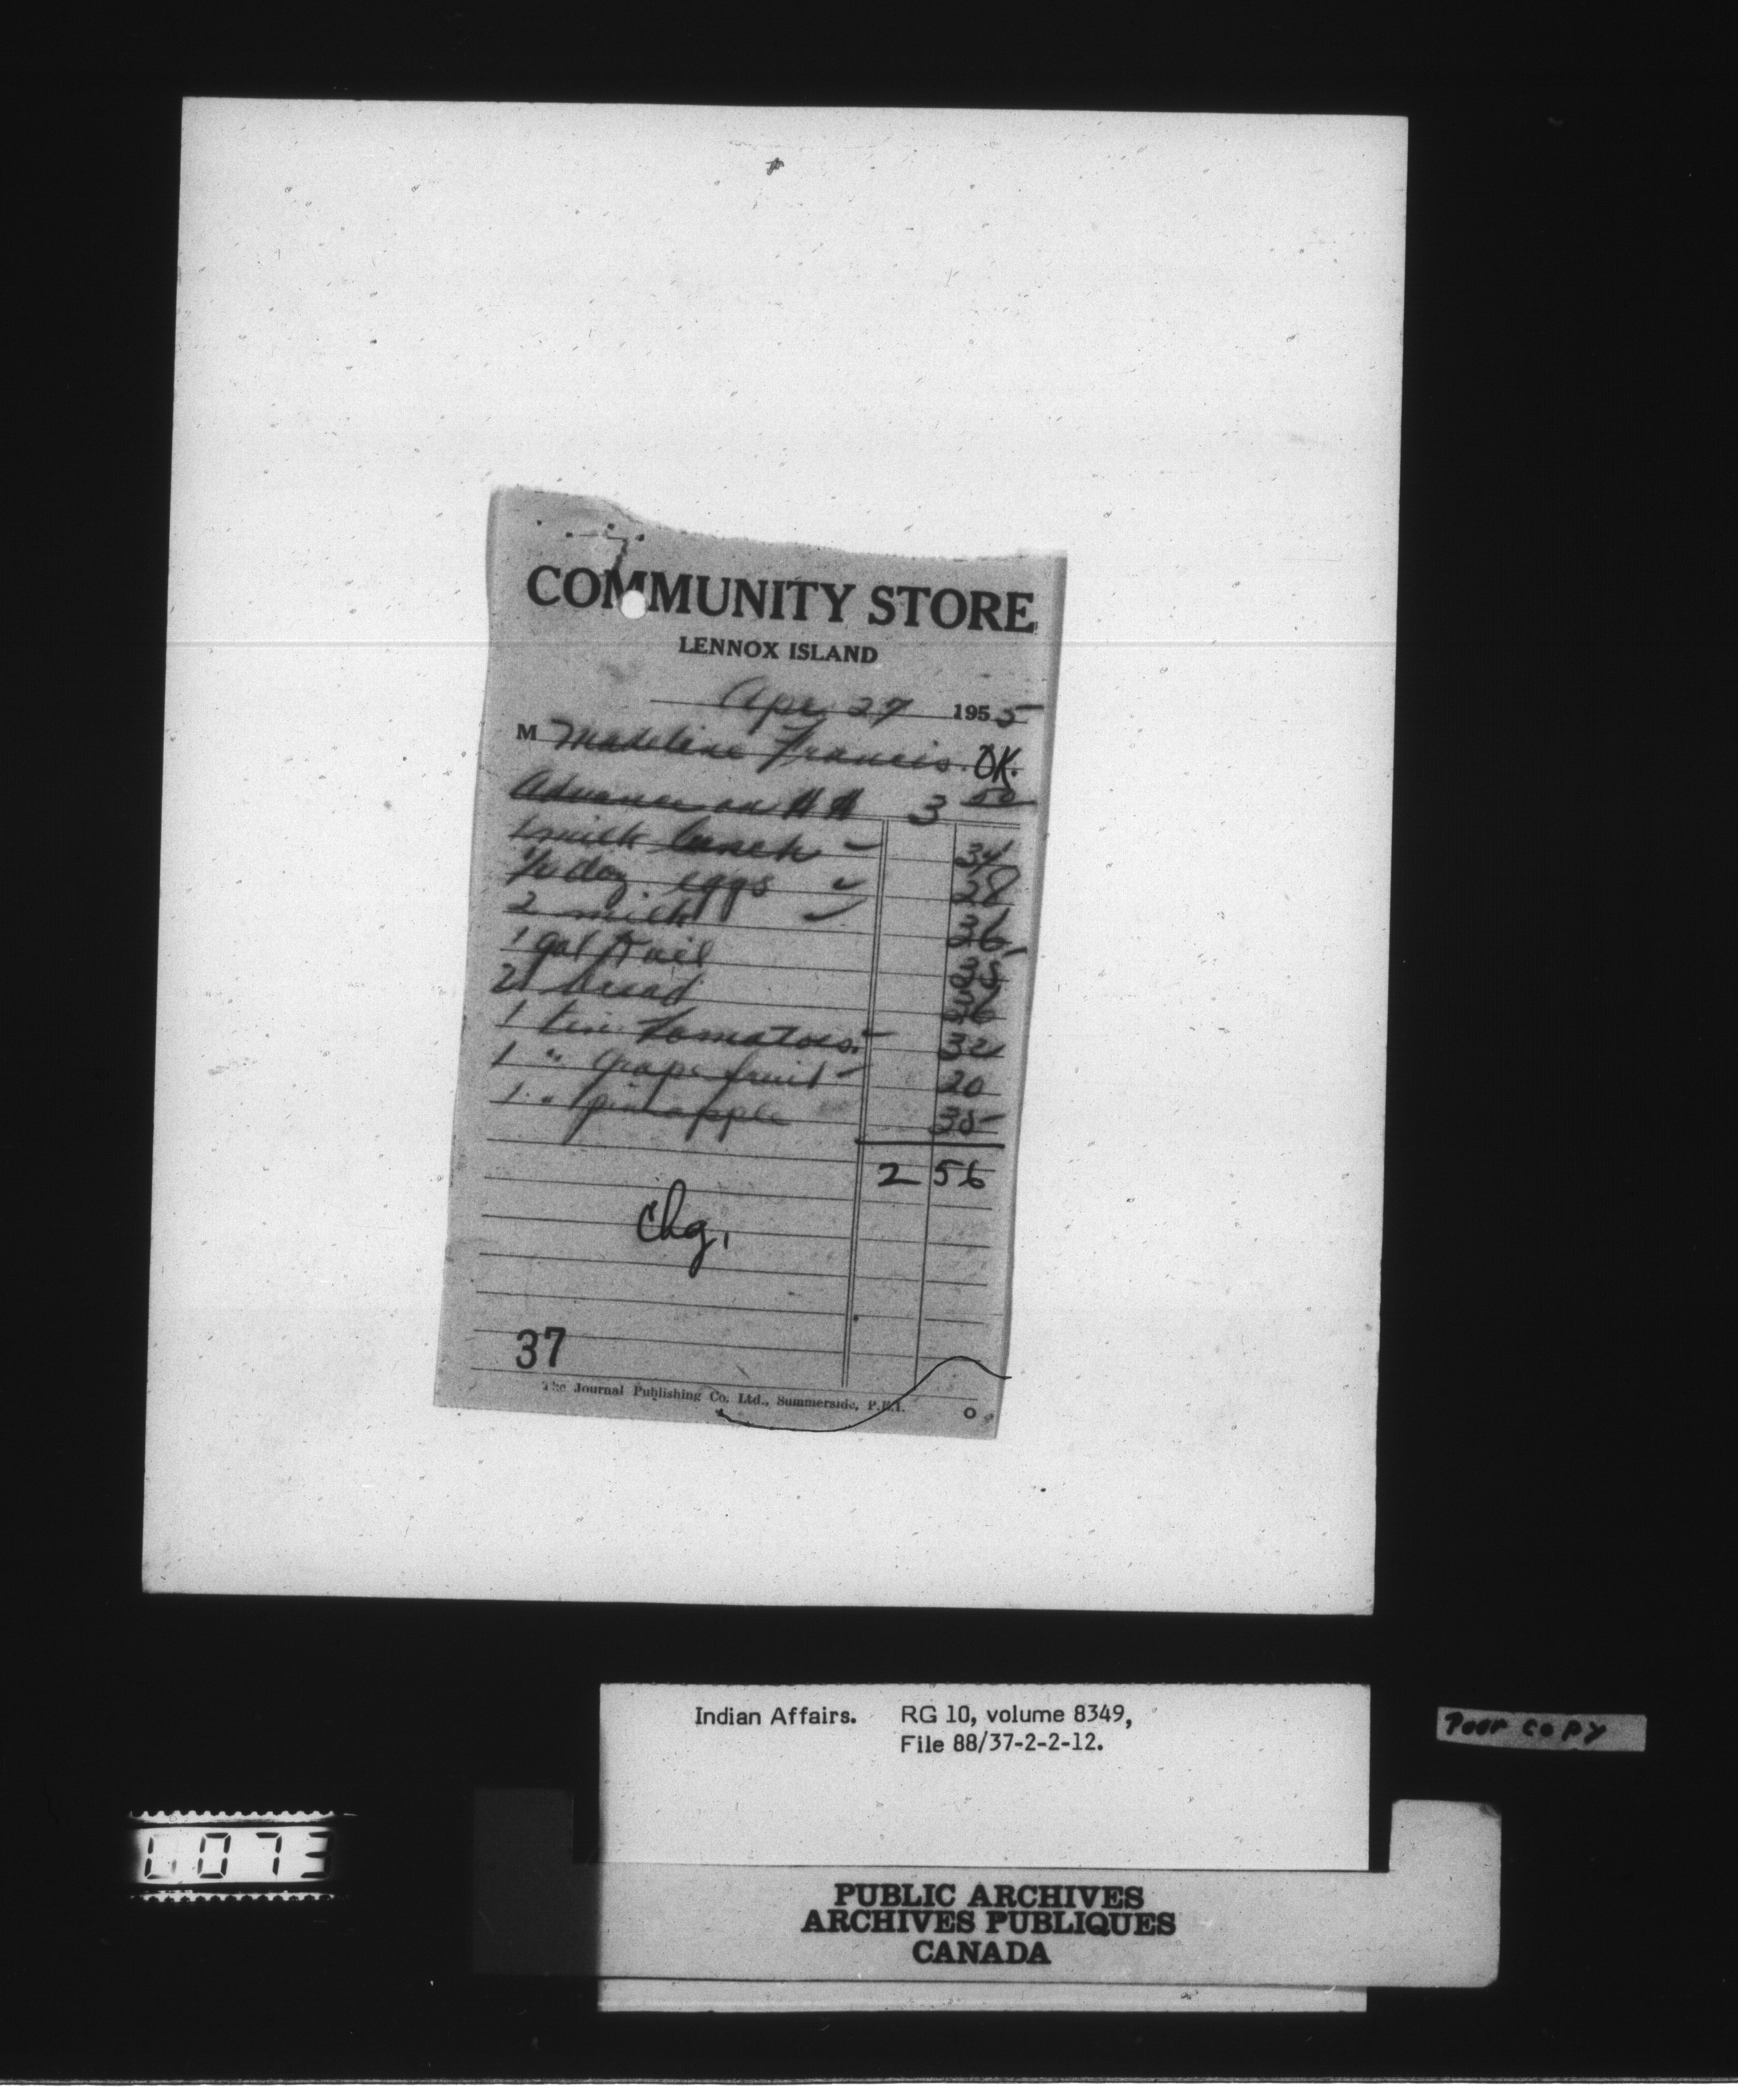 COMMUNITY STORE
LENNOX ISLAND
Apr 27 1955
M Madeline Francis. OK.
Advance on 3 50
1 milk lunch 34
1/2 doz eggs 28
2 milk 36
1 gal K oil 35
2 bread 36
1 tin tomatoes. 32
1 " grapefruit 20
1 " pineapple 35
2 56
chg.
37
The Journal Publishing Co. Ltd., Summerside, P.E.I.
Indian Affairs. RG 10, volume 8349,
File 88/37-2-2-12.
Poor copy
0073
PUBLIC ARCHIVES
ARCHIVES PUBLIQUES
CANADA